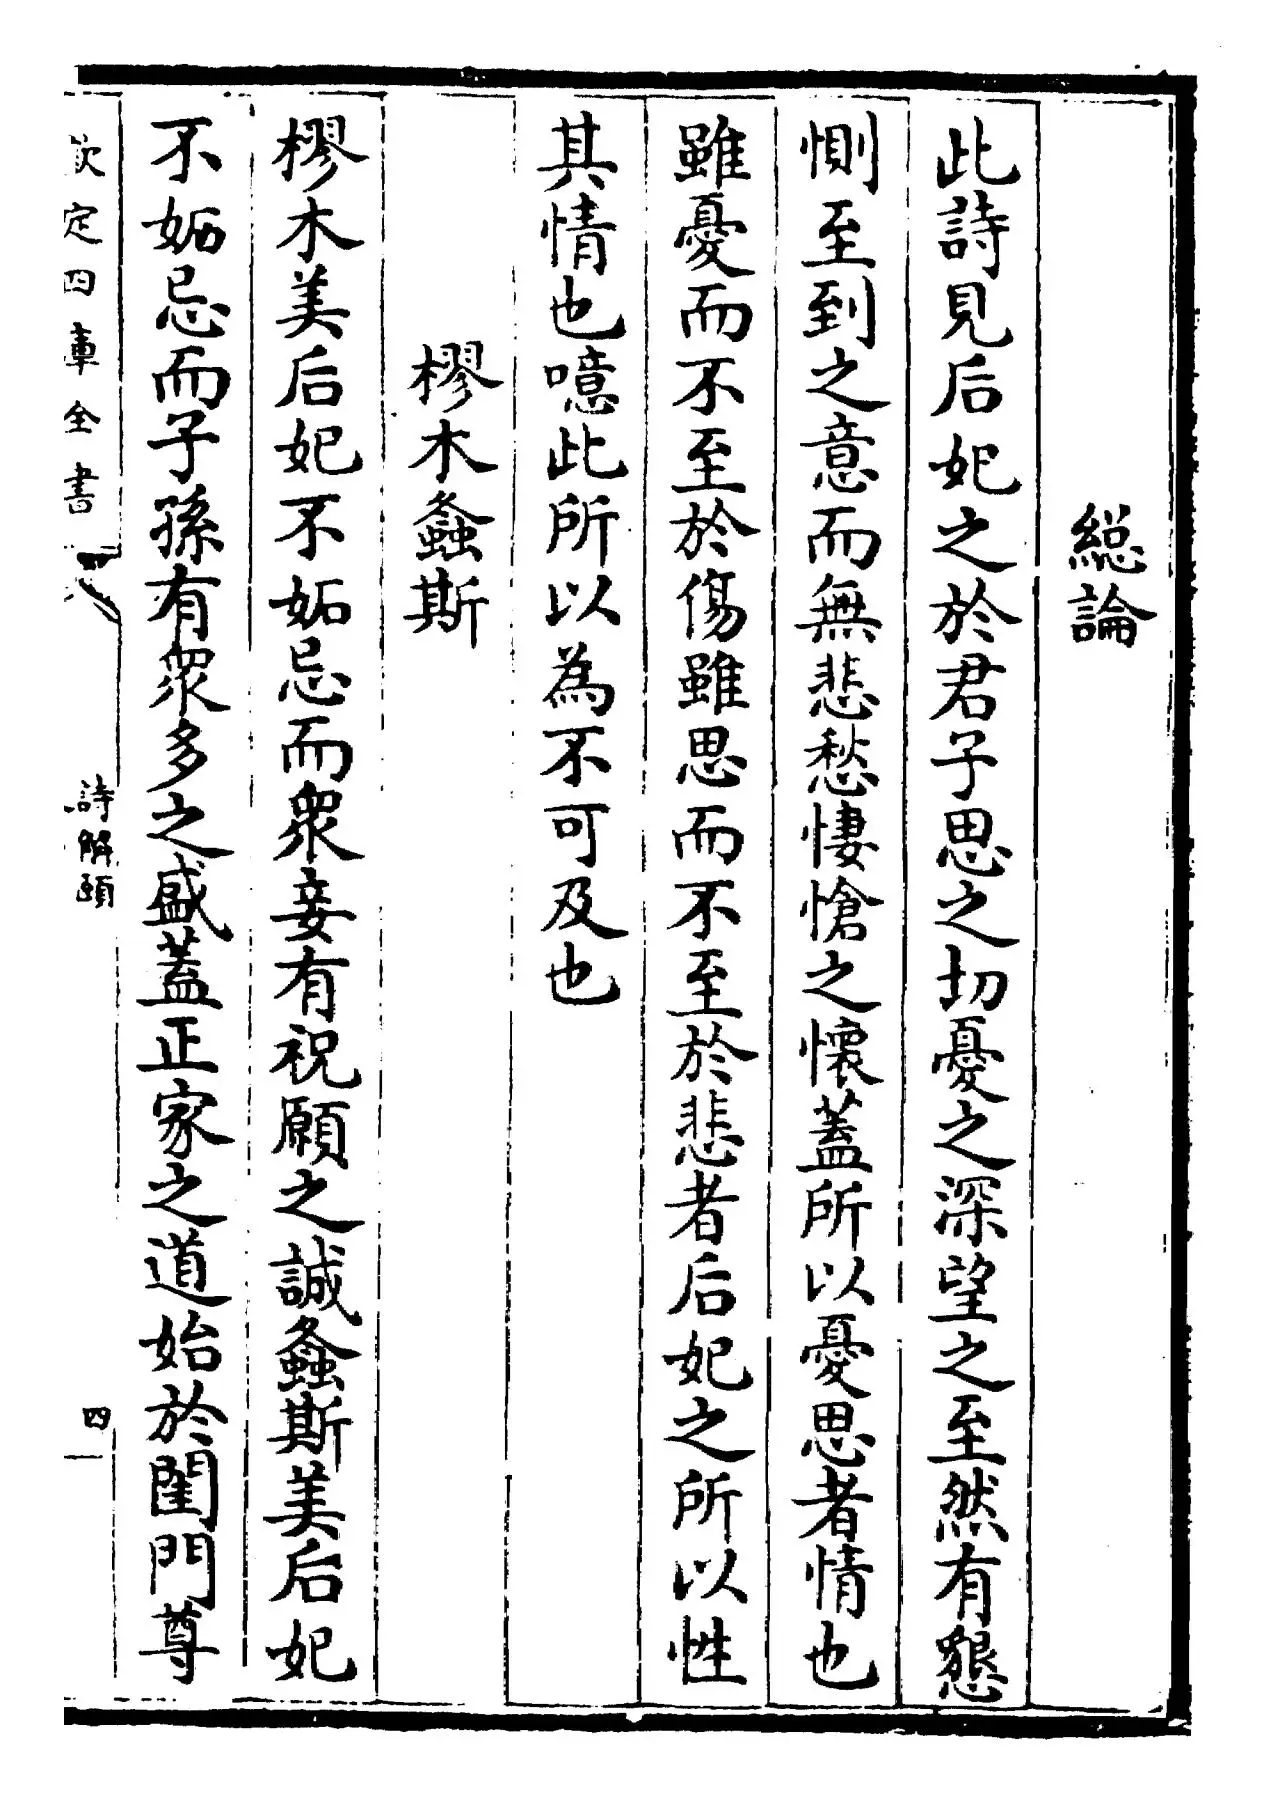 總論
此詩見后妃之於君子思之切憂之深望之至然有懇
惻至到之意而無悲愁悽愴之懷蓋所以憂思者情也
雖憂而不至於傷雖思而不至於悲者后妃之所以性
其情也噫此所以為不可及也
樛木螽斯
樛木美后妃不妬忌而衆妾有祝願之誠螽斯美后妃
不妬忌而子孫有衆多之盛蓋正家之道始於閨門尊
欽定四庫全書
詩解頤
四